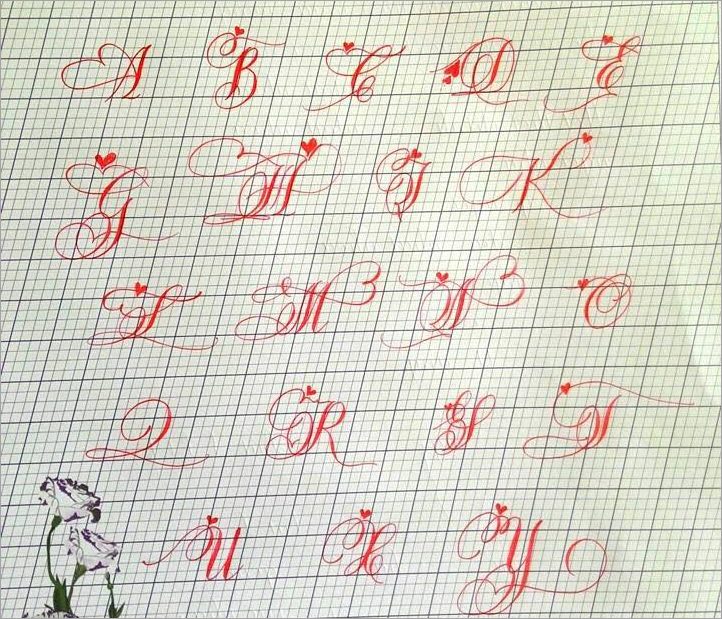 A B C D E
G H I K
L M N O
Q R S T
U X Y